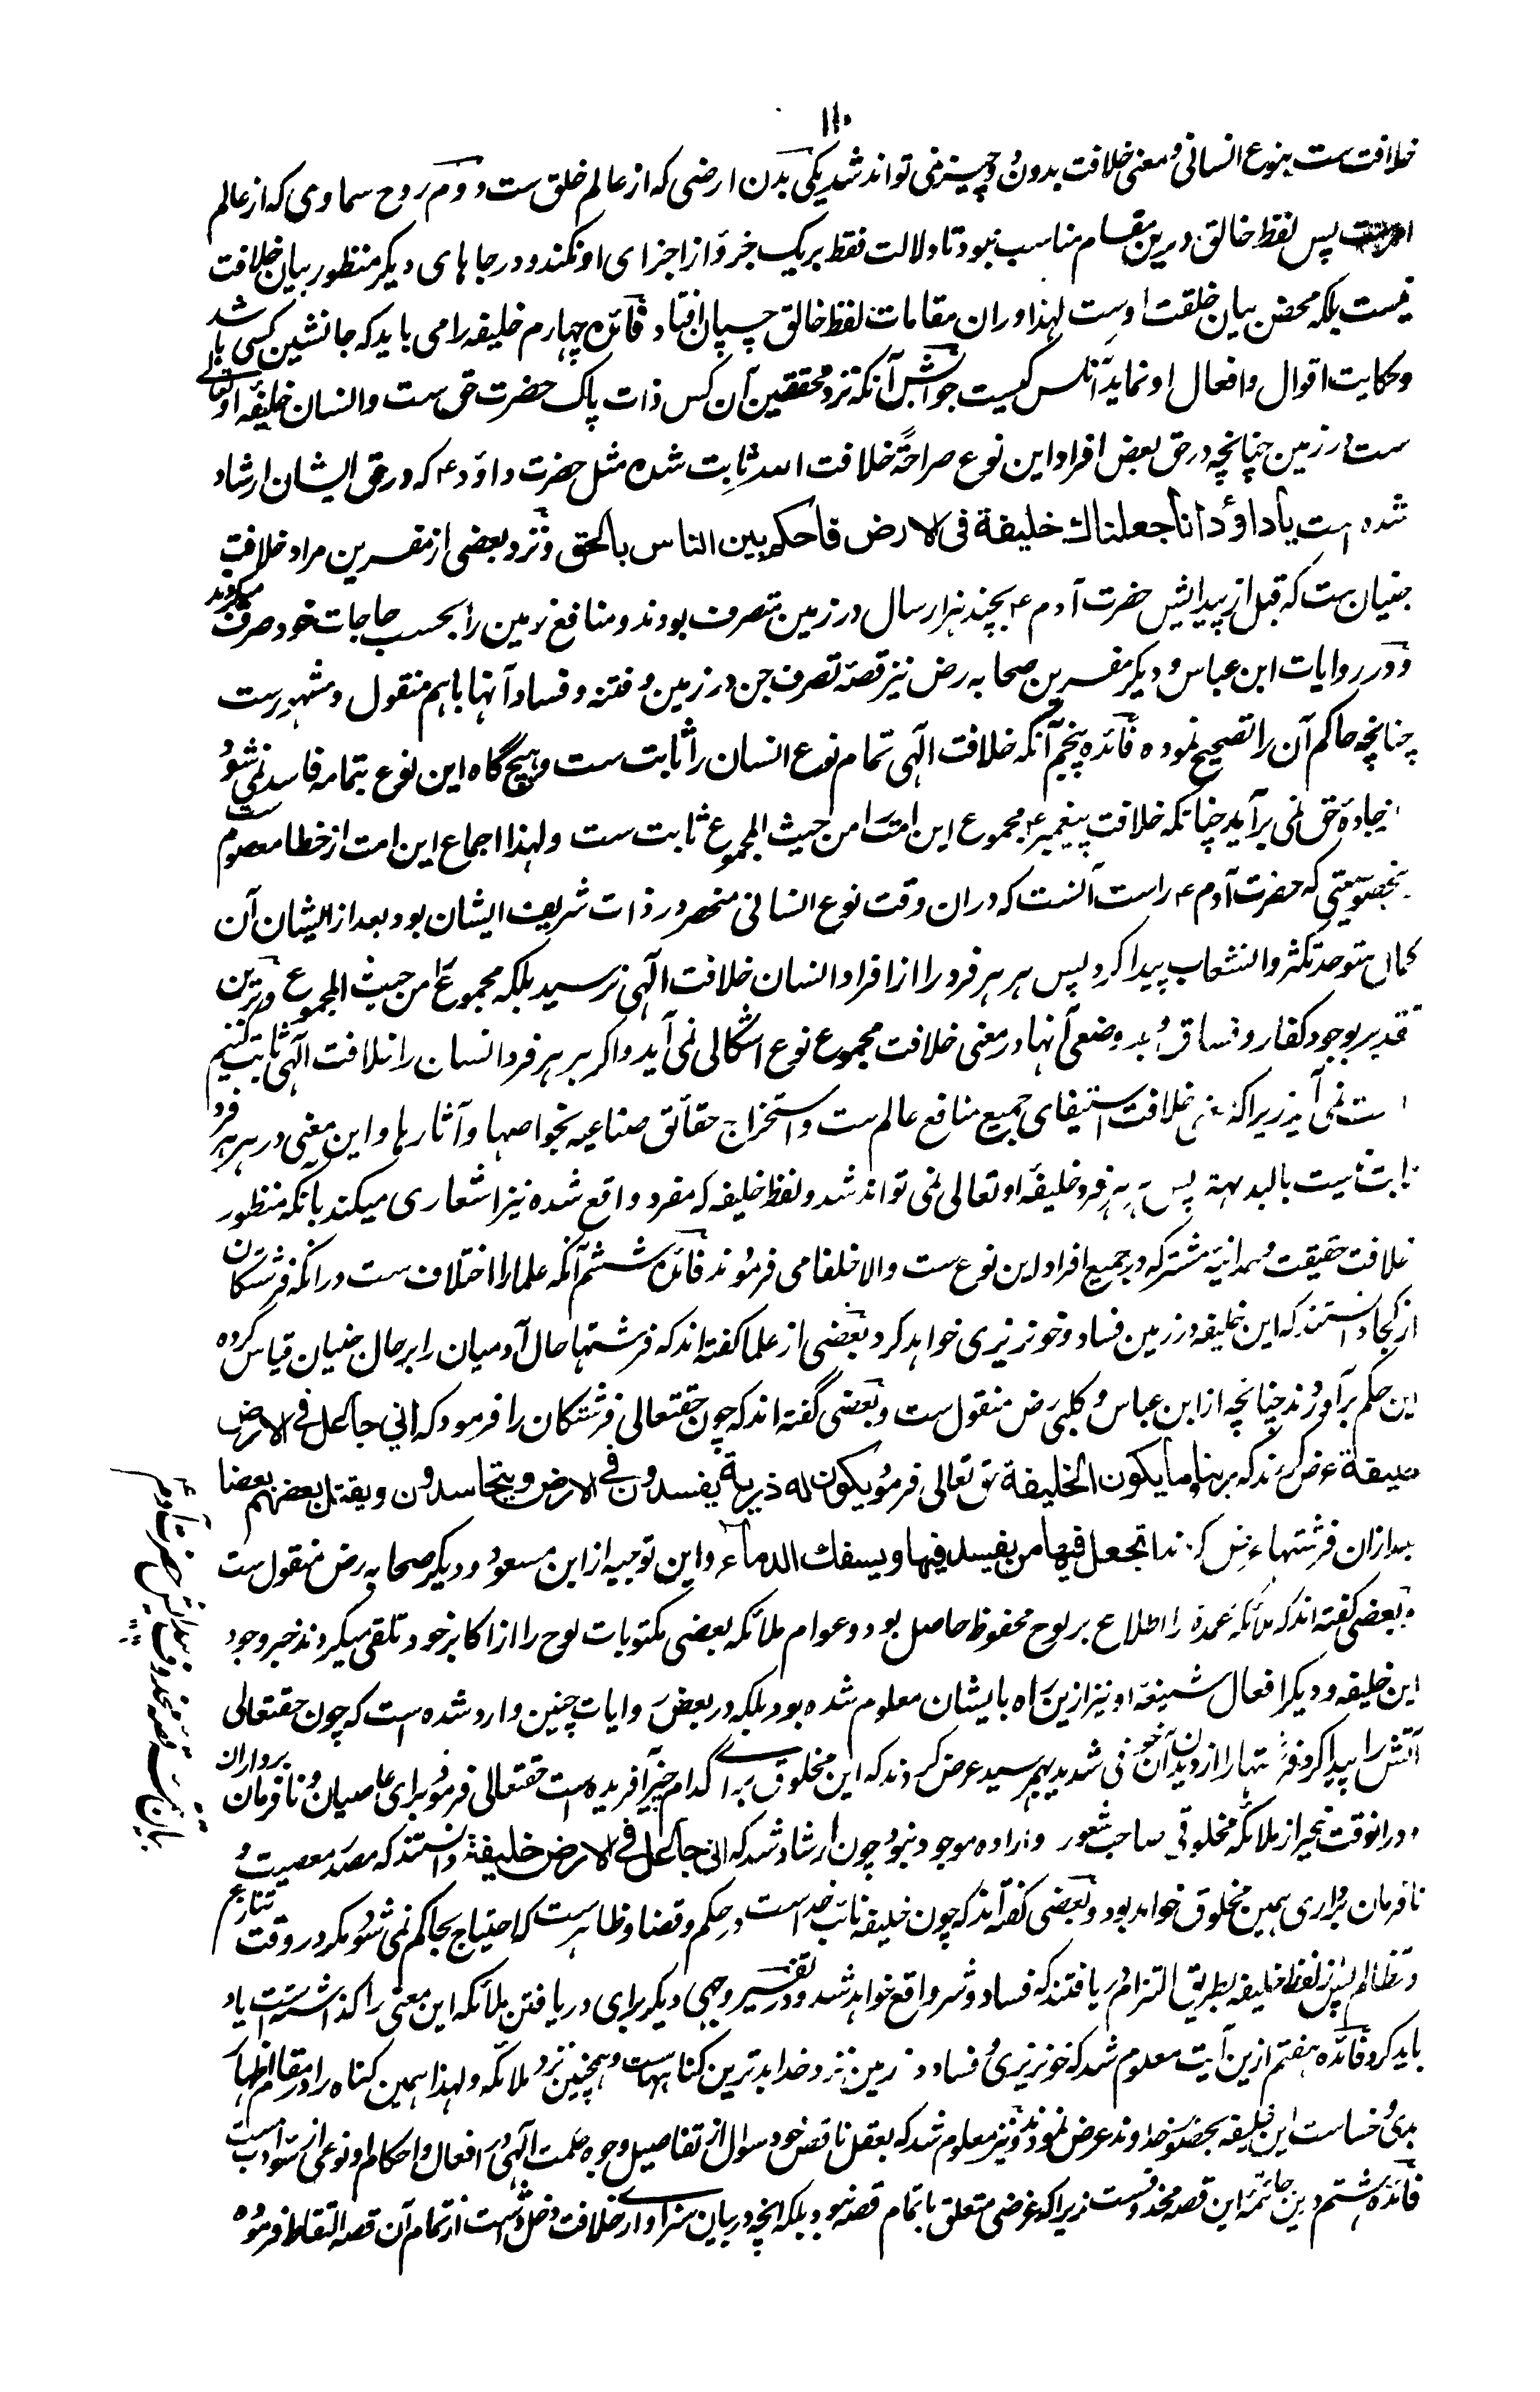 ۱۱۰
خلافت ست بنوع انسانی و معنی خلافت بدون دو چیز نمی تواند شد یکی بدن ارضی که از عالم خلق ست دوم روح سماوی که از عالم
پس لفظ خالق درین مقام مناسب نبود تا دلالت فقط بر یک جزو از اجزای او نکند و در جاهای دیگر منظور بیان خلافت
نیست بلکه محض بیان خلقت اوست لهذا در ان مقامات لفظ خالق چسپان افتاد فائده چهارم خلیفه را می باید که جانشین کسی باشد
و حکایت اقوال و افعال او نماید آنکس کیست جوابش آنکه نزد محققین آن کس ذات پاک حضرت حق ست و انسان خلیفه او تعالے
ست در زمین چنانچه در حق بعض افراد این نوع صراحةً خلافت الله ثابت شده مثل حضرت داؤد ع که در حق ایشان ارشاد
شده است یاداؤد انا جعلناك خلیفة فی الارض فاحکم بین الناس بالحق و نزد بعضی از مفسرین مراد خلافت
جنیان ست که قبل از پیدایش حضرت آدم ع بچند هزار سال در زمین متصرف بودند و منافع زمین را بحسب حاجات خود صرف میکردند
و در روایات ابن عباس و دیگر مفسرین صحابه رض نیز قصه تصرف جن در زمین و فتنه و فساد آنها باهم منقول و مشهورست
چنانچه حاکم آن را تصحیح نموده فائده پنجم آنکه خلافت الٰهی تمام نوع انسان را ثابت ست و هیچ گاه این نوع بتمامه فاسد نمی شود
جادهٔ حق نمی برآید چنانکه خلافت پیغمبر ع مجموع این امت را من حیث المجموع ثابت ست ولهذا اجماع این امت از خطا معصوم ست
خصوصیتی که حضرت آدم ع راست آنست که در ان وقت نوع انسانی منحصر در ذات شریف ایشان بود بعد از ایشان آن
کمال متوحد تکثر و انشعاب پیدا کرد پس هر هر فرد را از افراد انسان خلافت الٰهی نرسید بلکه مجموع را من حیث المجموع و برین
تقدیر بوجود کفار و فساق و بد وضعی آنها در معنی خلافت مجموع نوع اشکالی نمی آید و اگر بر هر فرد انسان را خلافت الٰهی ثابت کنیم
نمی آید زیرا که معنی خلافت استیفای جمیع منافع عالم ست و استخراج حقائق صناعیه بخواصها و آثارها و این معنی در هر هر فرد
ثابت نیست بالبداهة پس هر هر فرد خلیفه او تعالی نمی تواند شد و لفظ خلیفه که مفرد واقع شده نیز اشعاری میکند بانکه منظور
خلافت حقیقت وحدانیه مشترکه در جمیع افراد این نوع ست والا خلفا می فرمودند فائده ششم آنکه علما را اختلاف ست در انکه فرشتگان
از کجا دانستند که این خلیفه در زمین فساد و خونریزی خواهد کرد بعضی از علما گفته اند که فرشتها حال آدمیان را بر حال جنیان قیاس کرده
این حکم برآوردند چنانچه از ابن عباس و کلبی رض منقول ست و بعضی گفته اند که چون حقتعالی فرشتگان را فرمود که انی جاعل فی الارض
خلیفة عرض کردند که ربنا وما یکون الخلیفة حق تعالی فرمود یکون له ذریة یفسدون فی الارض ویتحاسدون ویقتل بعضهم بعضا
بعد ازان فرشتها عرض کردند اتجعل فیها من یفسد فیها ویسفك الدماء و این توجیه از ابن مسعود و دیگر صحابه رض منقول ست
و بعضی گفته اند که ملائکه عمده را اطلاع بر لوح محفوظ حاصل بود و عوام ملائکه بعضی مکتوبات لوح را از اکابر خود تلقی میکردند خبر وجود
این خلیفه و دیگر افعال شنیعه او نیز ازین راه بایشان معلوم شده بود بلکه در بعض روایات چنین وارد شده است که چون حقتعالی
آتش را پیدا کرد فرشتها را از دیدن آن خوفی شدید بهم رسید عرض کردند که این مخلوق برای کدام چیز آفریده است حقتعالی فرمود برای عاصیان و نافرمان برداران
و در انوقت بغیر از ملائکه مخلوقی صاحب شعور و اراده موجود نبود چون ارشاد شد که انی جاعل فی الارض خلیفة دانستند که مصدر معصیت و
نافرمان برداری همین مخلوق خواهد بود و بعضی گفته اند که چون خلیفه نائب خداست در حکم و قضا و ظاهرست که احتیاج بحاکم نمی شود مگر در وقت تنازع
و تظالم پس از لفظ خلیفه بطریق التزام دریافتند که فساد و شر واقع خواهد شد و در تفسیر وجهی دیگر برای دریافتن ملائکه این معنی را گذاشته است یاد
باید کرد فائده هفتم ازین آیت معلوم شد که خونریزی و فساد در زمین نزد خدا بدترین گناههاست و همچنین نزد ملائکه ولهذا همین گناه را در مقام اظهار
بدی و خساست این خلیفه بحضور خداوند عرض نمودند و نیز معلوم شد که بعقل ناقص خود سوال از تفاصیل وجوه حکمت الٰهی در افعال و احکام او نوعی از سوء ادب است
فائده هشتم درین جا تتمه این قصه محذوفست زیرا که غرضی متعلق باتمام قصه نبود بلکه انچه در بیان سزاواری خلافت دخل داشت از تمام آن قصه التقاط فرموده